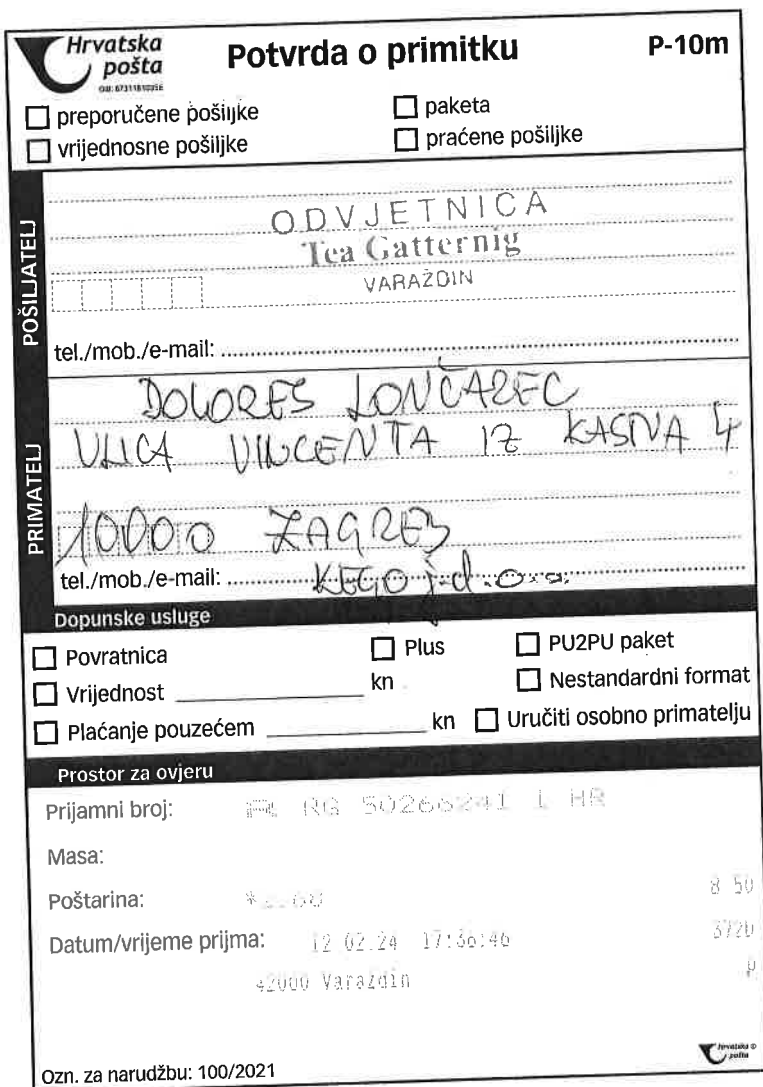 Hrvatska
pošta
Potvrda o primitku
P-10m
preporučene pošiljke
paketa
vrijednosne pošiljke
praćene pošiljke
POŠILJATELJ
ODVJETNICA
Tea Gatternig
VARAŽDIN
tel./mob./e-mail:
PRIMATELJ
DOLORES LONČAREC
ULICA VINCENTA IZ KASTVA 4
10000 ZAGREB
tel./mob./e-mail: KEGO j.d.o.o.
Dopunske usluge
Povratnica
Plus
PU2PU paket
Vrijednost kn
Nestandardni format
Plaćanje pouzećem kn
Uručiti osobno primatelju
Prostor za ovjeru
Prijamni broj: R RG 50266241 1 HR
Masa:
Poštarina:
8 50
Datum/vrijeme prijma: 12 02.24 17:36:46
3720
42000 Varaždin
Ozn. za narudžbu: 100/2021
Hrvatska
pošta